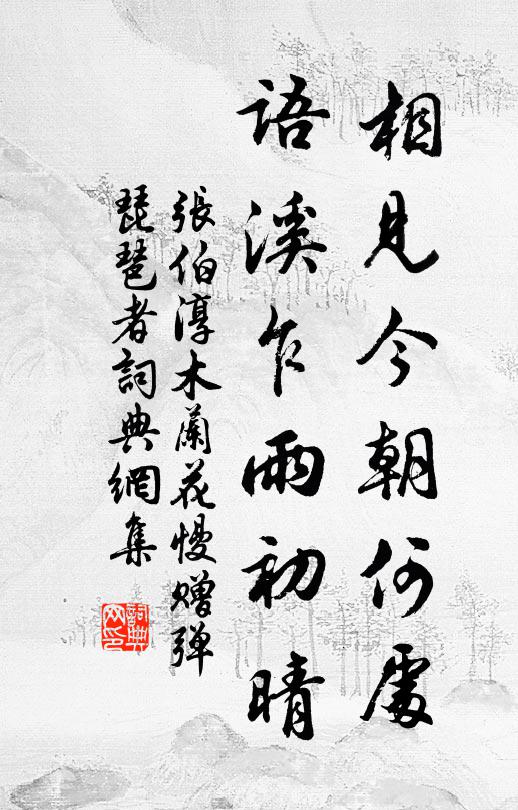 相見今朝何處
語溪乍雨初晴
張伯淳木蘭花慢贈弹
琵琶者詞典網集
詞典網印